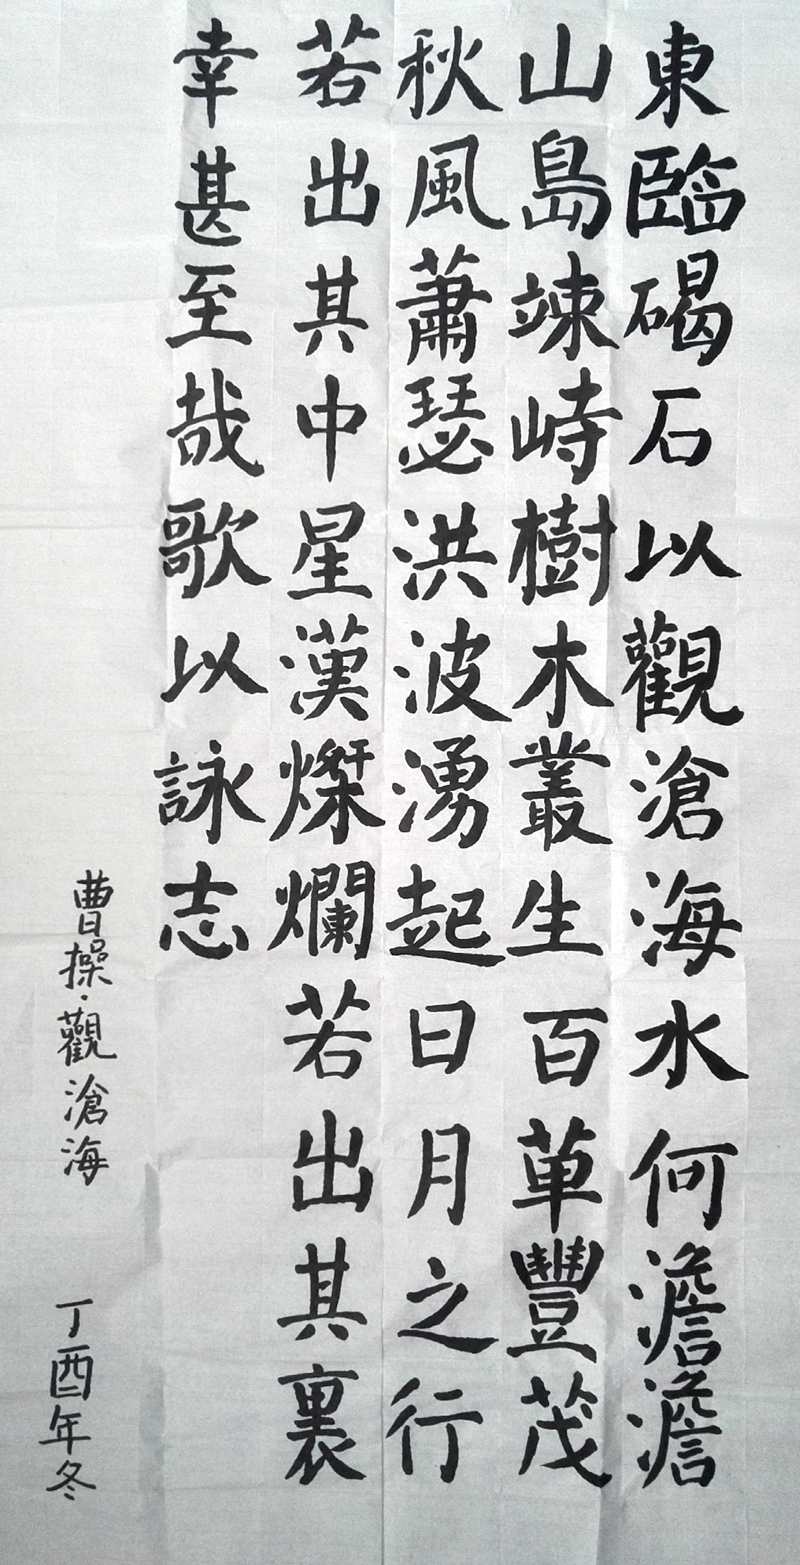 東臨碣石以觀滄海水何澹澹
山島竦峙樹木叢生百草豐茂
秋風蕭瑟洪波湧起日月之行
若出其中星漢燦爛若出其裏
幸甚至哉歌以詠志
曹操·觀滄海
丁酉年冬